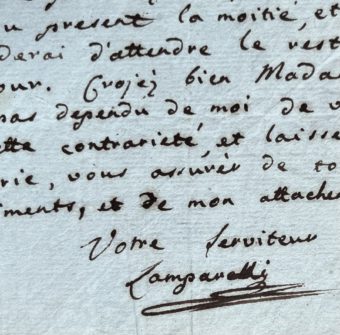 u present la moitié, et
derai d'attendre le rest
our. Crojez bien Mada
pas dependu de moi de v
tte contrariété, et laisse
rie, vous assurér de to
iments, et de mon attache
Votre Serviteur
Lamparelli